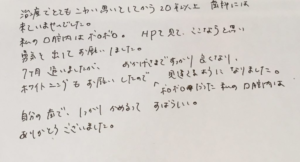 治療でとてもこわい思いをしてから20年以上 歯科には
来れませんでした。
私の口腔内はボロボロ。HPで見て、ここならと思い
勇気を出してお願いしました。
7ヶ月 通いましたが、おかげさまですっかり良くなり、
ホワイトニングもお願いしたので ボロボロだった私の口腔内は
見違えるようになりました。
自分の歯で、しっかりかめるって すばらしい。
ありがとうございました。